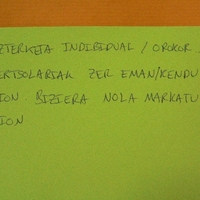 AZTERKETA INDIBIDUAL / OROKOR.
BERTSOLARIAK ZER EMAN/KENDU
DION. BIZIERA NOLA MARKATU
DION